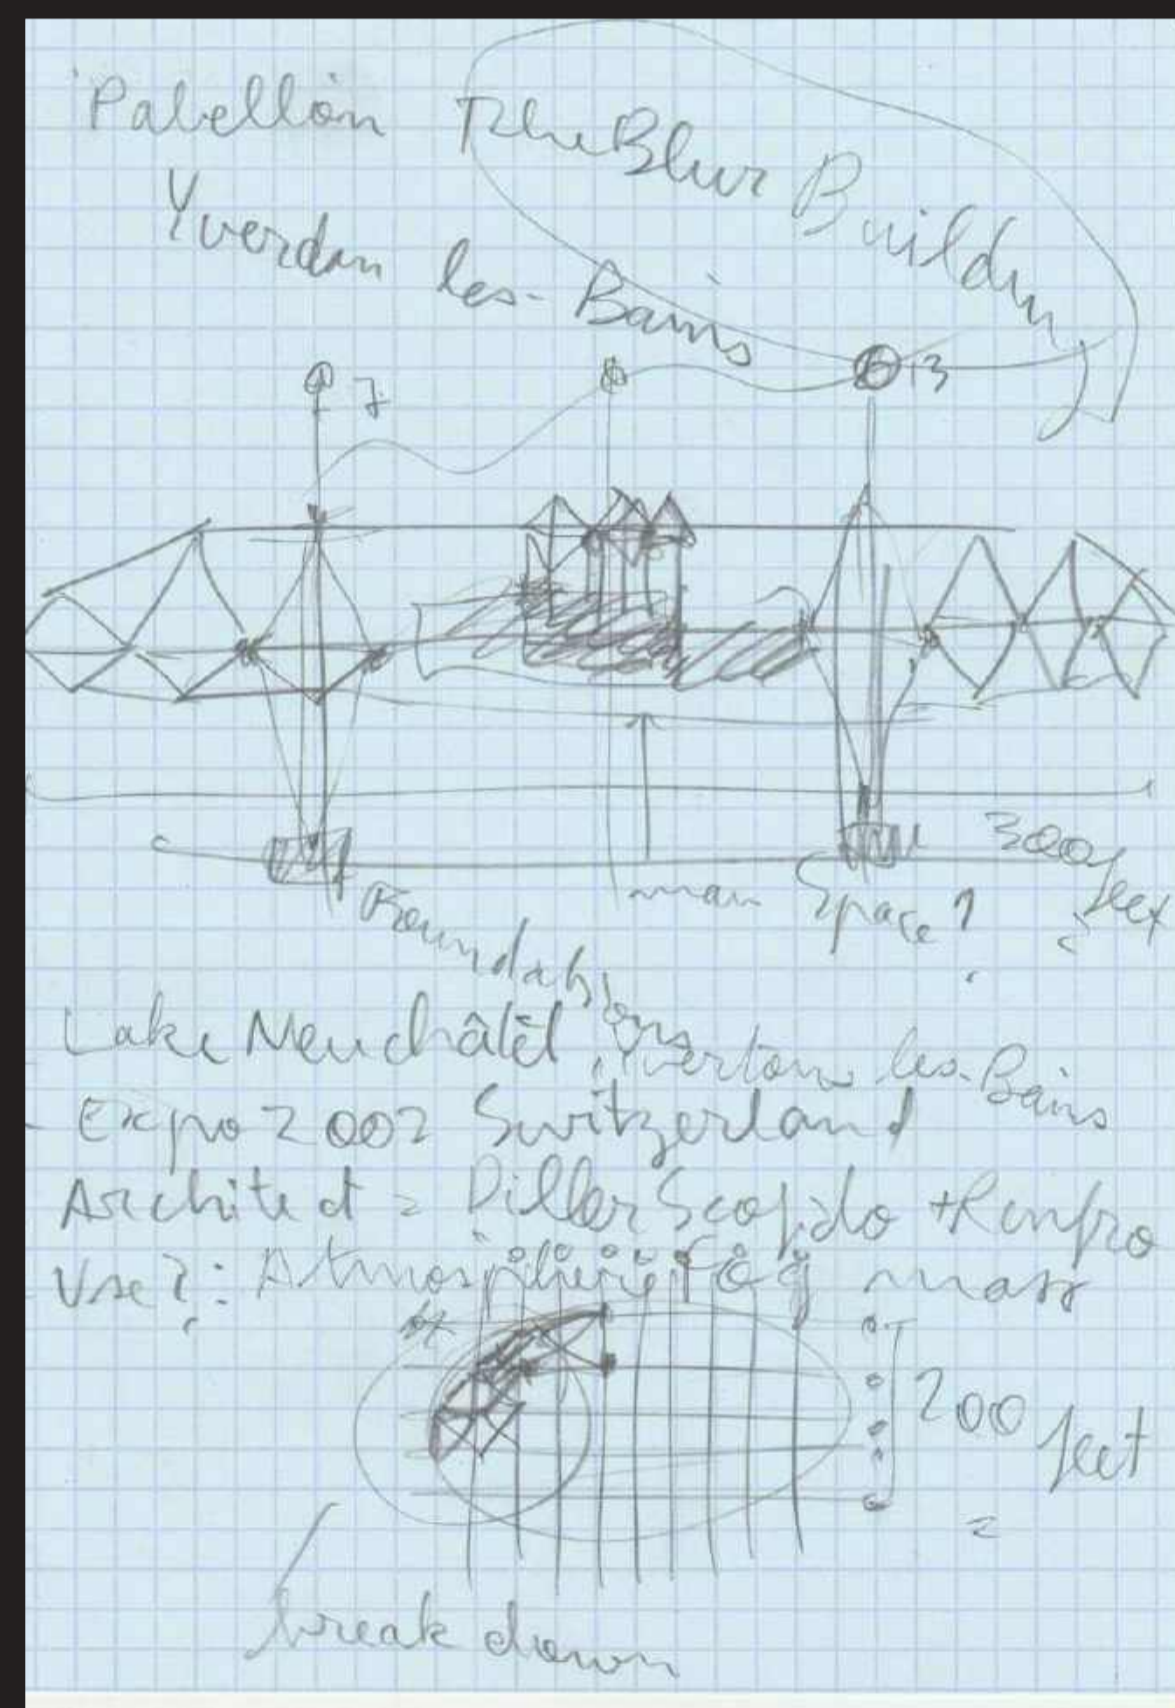 Pabellón The Blur Building
Yverdon les-Bains
7
13
300 feet
main Space?
Foundations
Lake Neuchâtel, Yverton les-Bains
- Expo 2002 Switzerland
Architect = Diller Scofido + Renfro
Use?: Atmospheric fog mass
200 feet
break down